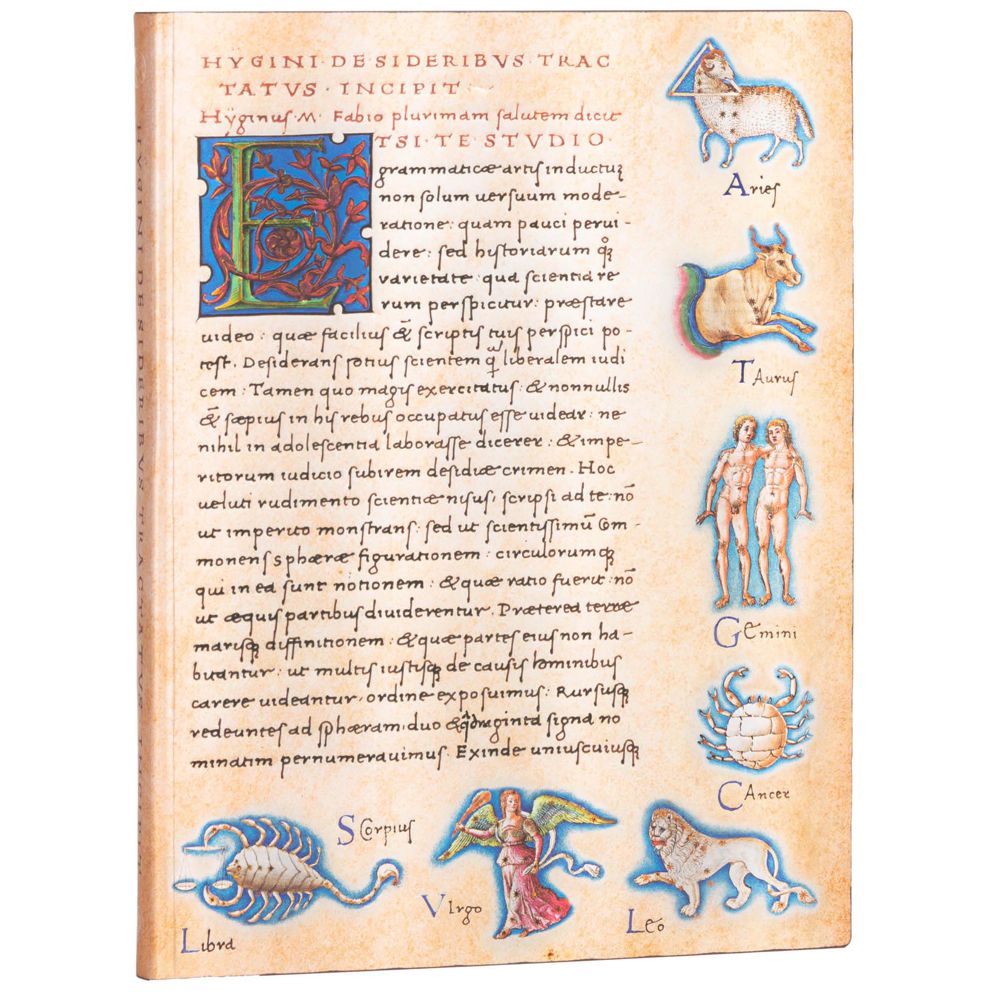 HYGINI · DE SIDERIBVS · TRAC
TATVS · INCIPIT
Hÿginus · M · Fabio plurimam salutem dicit
ETSI · TE · STVDIO ·
grammaticæ artis inductuȝ
non solum versuum mode-
ratione: quam pauci perui-
dere: sed historiarum qȝ
varietate: qua scientia re
rum perspicitur: præstare
uideo: quæ facilius & scriptis tuis perspici po-
test. Desiderans potius scientem q̄ liberalem iudi
cem: Tamen quo magis exercitatus: & nonnullis
& sæpius in his rebus occupatus esse uidear: ne
nihil in adolescentia laborasse dicerer: & impe-
ritorum iudicio subirem desidiæ crimen. Hoc
ueluti rudimento scientiæ nisus, scripsi ad te: nō
ut imperito monstrans: sed ut scientissimū Com-
monens sphæræ figurationem: circulorumqȝ
qui in ea sunt notionem: & quæ ratio fuerit: nō
ut æquis partibus diuiderentur. Præterea terræ
marisqȝ diffinitionem: & quæ partes eius non ha-
bitantur: ut multis iustisqȝ de causis hominibus
carere uideantur, ordine exposuimus: Rursusqȝ
redeuntes ad sphæram, duo & quadraginta signa no
minatim pernumerauimus. Exinde uniuscuiusqȝ
Aries
TAurus
GEmini
CAncer
LEo
VIrgo
SCorpius
Libra
HYGINI DE SIDERIBVS TRACTATVS